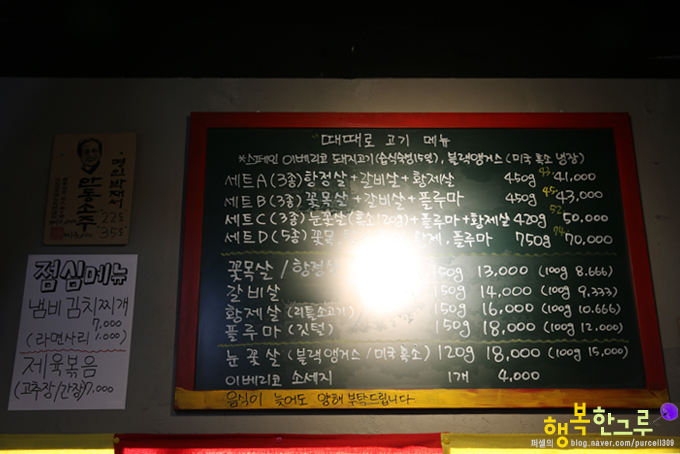 때때로 고기 메뉴
*스페인 이베리코 돼지고기(습식숙성15일), 블랙앵거스(미국 흑소 냉장)
세트A (3종) 항정살+갈비살+황제살 450g 43 41,000
세트B (3종) 꽃목살+갈비살+플루마 450g 45 43,000
세트C (3종) 눈꽃살(흑소120g)+플루마+황제살 420g 52 50,000
세트D (5종) 꽃목 플루마 750g 74 70,000
꽃목살/항정 50g 13,000 (100g 8.666)
갈비살 150g 14,000 (100g 9,333)
황제살 (리틀소고기) 150g 16,000 (100g 10.666)
플루마 (깃털) 150g 18,000 (100g 12.000)
눈꽃살 (블랙앵거스/미국흑소) 120g 18,000 (100g 15,000)
이베리코 소세지 1개 4,000
음식이 늦어도 양해 부탁드립니다.
이동소주
22도
35도
점심메뉴
냄비김치찌개
7,000
(라면사리 1,000)
제육볶음
(고추장/간장) 7,000
행복한그루
퍼셀의 blog.naver.com/purcell309